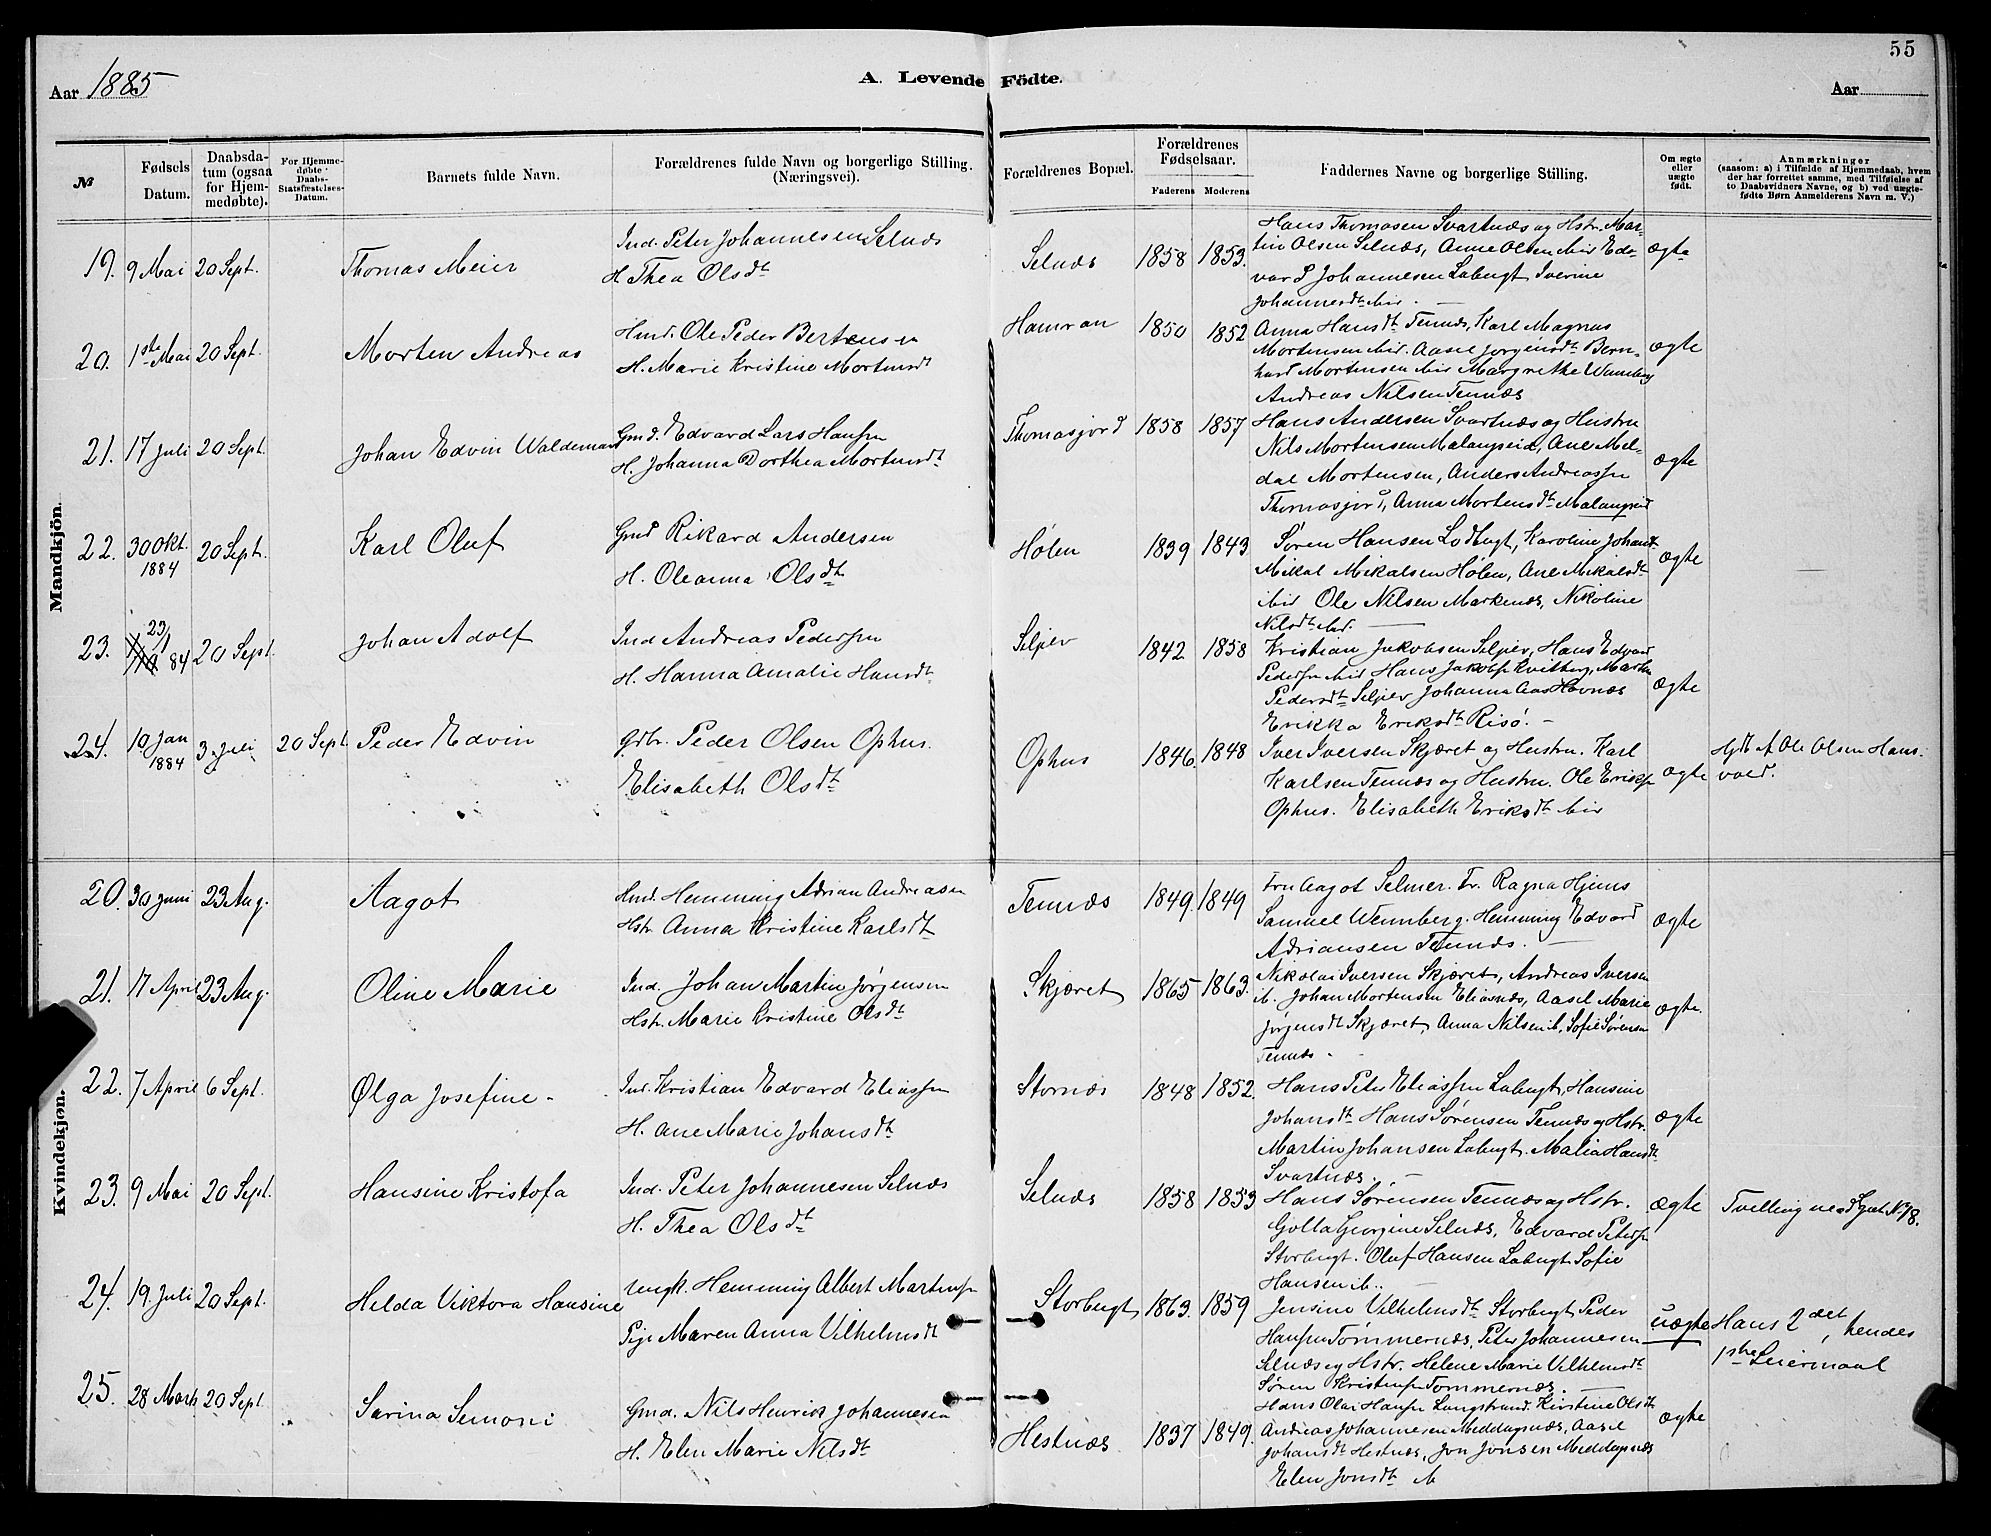 55
Aar 1885 A. Levende Födte. Aar
№ Fødsels Datum. Daabsdatum (ogsaa for Hjemmedøbte). For Hjemmedøbte Daabs-Statsfæstelses-Datum. Barnets fulde Navn. Forældrenes fulde Navn og borgerlige Stilling. (Næringsvei). Forældrenes Bopæl. Forældrenes Fødselsaar. Faderens Moderens Faddernes Navne og borgerlige Stilling. Om ægte eller uægte født. Anmærkninger (saasom: a) i Tilfælde af Hjemmedaab, hvem der har forrettet samme, med Tilføielse af to Daabsvidners Navne, og b) ved uægtefødte Børn Anmelderens Navn m. V.)
Mandkjön.
19. 9 Mai 20 Sept. Thomas Meier Ind. Peter Johannesen Selnæs
H Thea Olsdt
Selnæs 1858 1853. Hans Thomasen Svartnæs og Hstr. Mar-
tin Olsen Selnæs, Anne Olsen ibid Ed-
var P Johannesen Labugt Iverine
Johannesdt ibid. ægte
20. 1ste Mai 20 Sept. Morten Andreas Hmd. Ole Peder Bertensen
H. Marie Kristine Mortensdt
Hamran 1850 1852 Anna Hansdt Tennæs, Karl Magnus
Mortensen ibid. Aasel Jørgensdt Bern-
hard Mortensen ibid Margrethe Wennberg
Andreas Nilsen Tennæs ægte
21. 17 Juli 20 Sept. Johan Edvin Waldemar Gmd. Edvard Lars Hansen
H. Johanna Dorthea Mortensdt
Thomasjord 1858 1857 Hans Andersen Svartnæs og Hustru
Nils Mortensen Malangseid, Ane Mel-
dal Mortensen, Anders Andreassen
Thomasjord, Anna Mortensdt Malangseid ægte
22. 30 Okt. 1884 20 Sept. Karl Oluf Gmd Rikard Andersen
H. Oleanna Olsdt
Hølen 1839 1843 Søren Hansen Lodbugt, Karoline Johansdt
Mikal Mikalsen Hølen, Ane Mikalsdt
ibid Ole Nilsen Markenæs, Nikoline
Nilsdt ibid. ægte
23. 23/1 84 20 Sept. Johan Adolf Ind Andreas Pedersen
H. Hanna Amalie Hansdt
Seljev 1842 1858 Kristian Jakobsen Seljev, Hans Edvard
Pedersen ibid Hans Jakobsen Kvitberg, Martha
Pedersdt Seljev Johanna Aas Hovnæs
Erikka Eriksdt Risö. ægte
24. 10 Jan 1884 3 Juli 20 Sept Peder Edvin Gdbr. Peder Olsen Ophus.
Elisabeth Olsdt
Ophus 1846. 1848 Iver Iversen Skjæret og Hustru. Karl
Karlsen Tennæs og Hustru. Ole Eriksen
Ophus. Elisabeth Eriksdt ibid ægte Hjdt af Ole Olsen Hans-
vold.
Kvindekjøn.
20. 30 Juni 23 Aug. Aagot Hmd. Hemming Adrian Andreasen
Hstr Anna Kristine Karlsdt
Tennæs 1849. 1849 Fru Aagot Selmer. Fr. Ragna Hjems
Samuel Wennberg. Hemming Edvard
Adriansen Tennæs. ægte
21. 17 April 23 Aug. Oline Marie Ind. Johan Martin Jørgensen
Hstr. Marie Kristine Olsdt
Skjæret 1865 1863. Nikolai Iversen Skjæret, Andreas Iversen
ib. Johan Mortensen Eliasnæs, Aasel Marie
Jørgensdt Skjæret, Anna Nilsen ib, Sofie Sørensen
Tennæs. ægte.
22. 7 April 6 Sept. Olga Josefine Ind. Kristian Edvard Eliassen
H. Ane Marie Johansdt
Stornæs 1848 1852. Hans Peter Eliassen Labugt, Hansine
Johansdt Hans Sørensen Tennæs og Hstr.
Martin Johansen Labugt. Malia Hansdt
Svartnæs. ægte
23. 9 Mai 20 Sept. Hansine Kristofa Ind. Peter Johannesen Selnæs
H. Thea Olsdt
Selnæs 1858 1853 Hans Sørensen Tennæs og Hstr.
Golla Georgine Selnæs, Edvard Petersen
Storbugt. Oluf Hansen Labugt Sofie
Hansen ib. ægte Tvilling med Gut N. 18.
24. 19. Juli 20 Sept. Helda Viktora Hansine Ungk. Hemming Albert Martinsen
Pige Maren Anna Vilhelmsdt
Storbugt 1863. 1859 Jensine Vilhelmsdt Storbugt Peder
Hansen Tømmernæs, Peter Johannesen
Selnæs og Hstr. Helene Marie Vilhelmsdt
Søren Kristensen Tømmernæs. uægte Hans 2det, hendes
1ste Leiermaal
25. 28 Marts 20 Sept. Sarina Simoni Gmd. Nils Henrik Johannesen
H. Elen Marie Nilsdt
Hestnæs 1837 1849. Hans Olai Hansen Langstrand. Kirstine Olsdt
Andreas Johannesen Meddagsnæs, Aasel
Johansdt Hestnæs, Jon Jonsen Meddagsnæs
Elen Jonsdt ib ægte